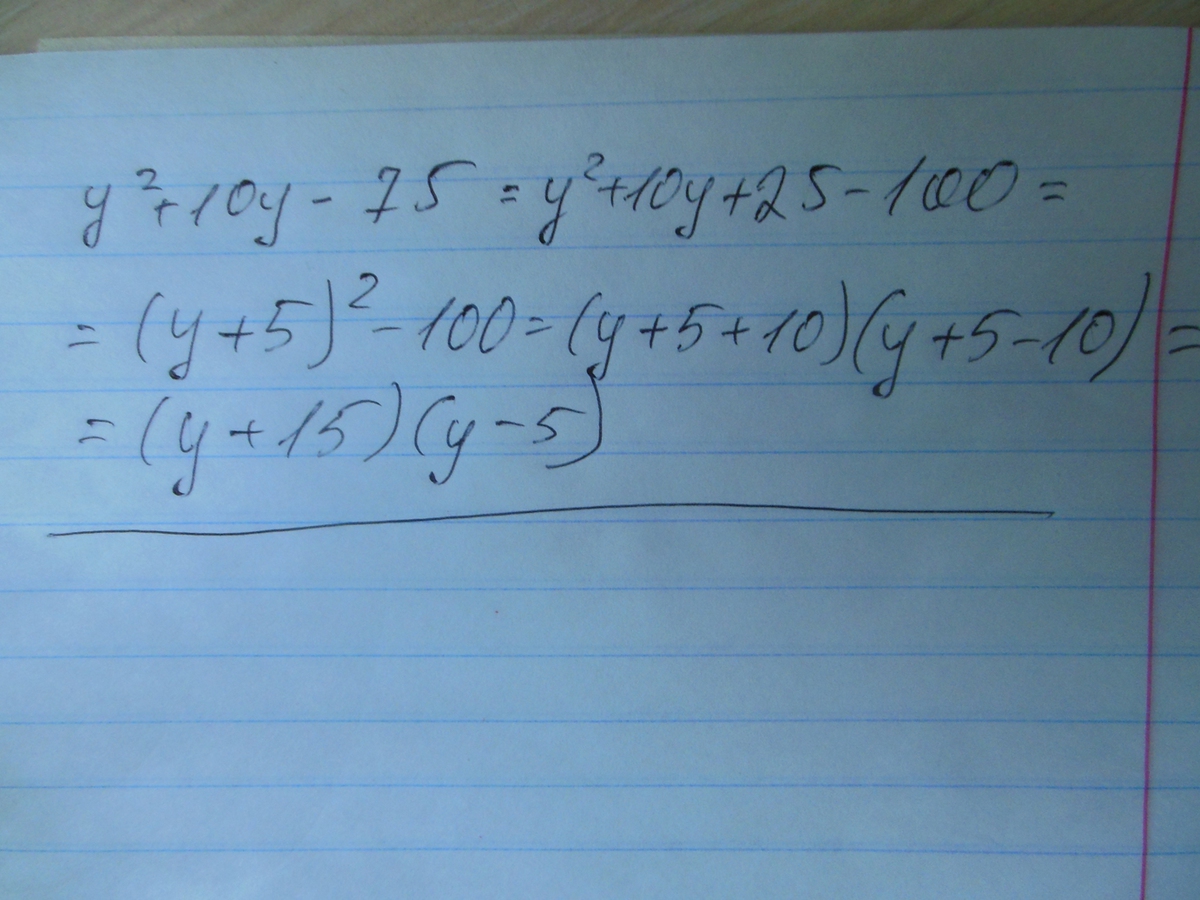 y²+10y-75=y²+10y+25-100=
=(y+5)²-100=(y+5+10)(y+5-10)=
=(y+15)(y-5)